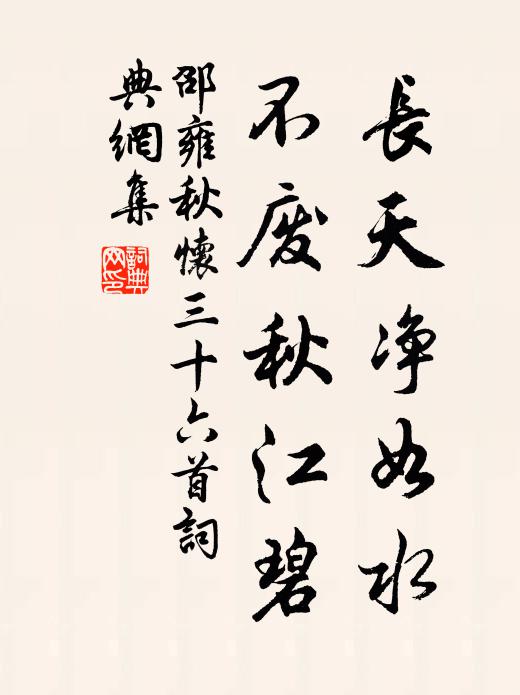 長天净如水
不废秋江碧
邵雍秋懷三十六首詞
典網集
詞典网印